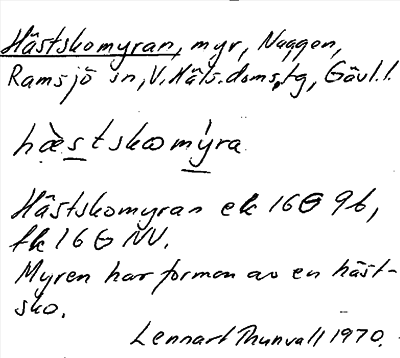 Hästskomyran, myr, Naggen,
Ramsjö sn, V. Häls. doms. tg, Gävl. l.
hæ̀stskomýra
Hästskomyran ek 16G 9b,
fk 16G NV.
Myren har formen av en häst-
sko.
Lennart Thunvall 1970.